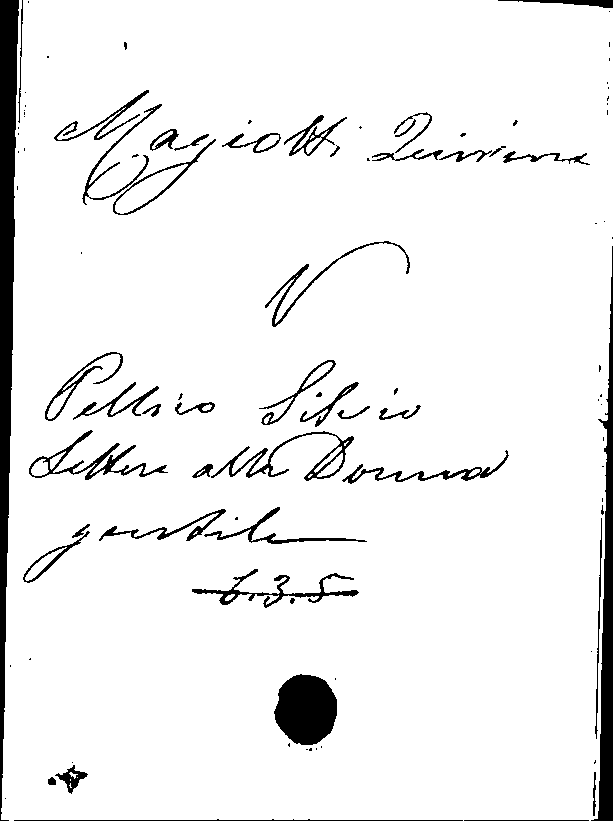 Magiotti Quirina
V
Pellico Silvio
Lettere alla Donna
gentile
6.3.5